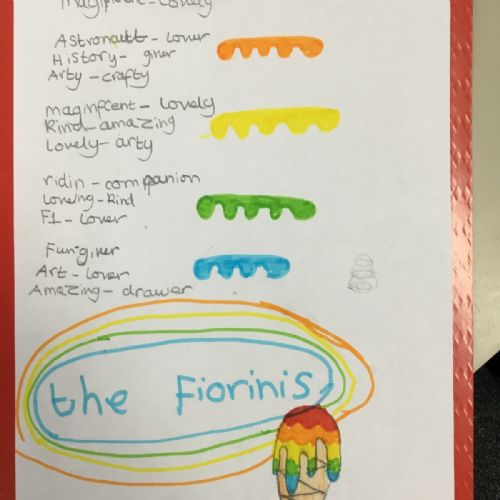 magnificent - Lovely
Astronautt - Lover
History - giver
Arty - crafty
maginfcent - Lovely
Kind - amazing
Lovely - arty
ridin - companion
Loveing - kind
F1 - Lover
Fun-giver
Art - Lover
Amazing - drawer
the Fiorinis